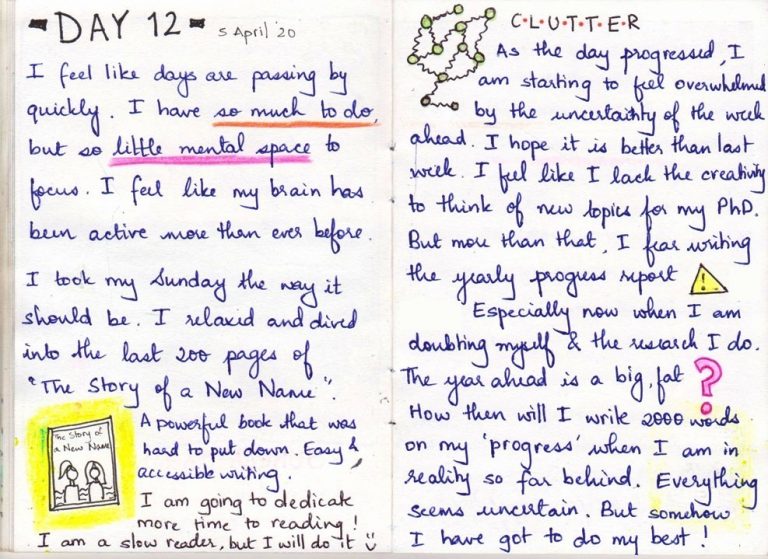 DAY 12 5 April '20
I feel like days are passing by
quickly. I have so much to do,
but so little mental space to
focus. I feel like my brain has
been active more than ever before.
I took my Sunday the way it
should be. I relaxed and dived
into the last 200 pages of
"The Story of a New Name".
The Story of
a New Name
A powerful book that was
hard to put down. Easy &
accessible writing.
I am going to dedicate
more time to reading!
I am a slow reader, but I will do it
C.L.U.T.T.E.R
As the day progressed, I
am starting to feel overwhelmed
by the uncertainty of the week
ahead. I hope it is better than last
week. I feel like I lack the creativity
to think of new topics for my PhD.
But more than that, I fear writing
the yearly progress report !
Especially now when I am
doubting myself & the research I do.
The year ahead is a big, fat ?
How then will I write 2000 words
on my 'progress' when I am in
reality so far behind. Everything
seems uncertain. But somehow
I have got to do my best!